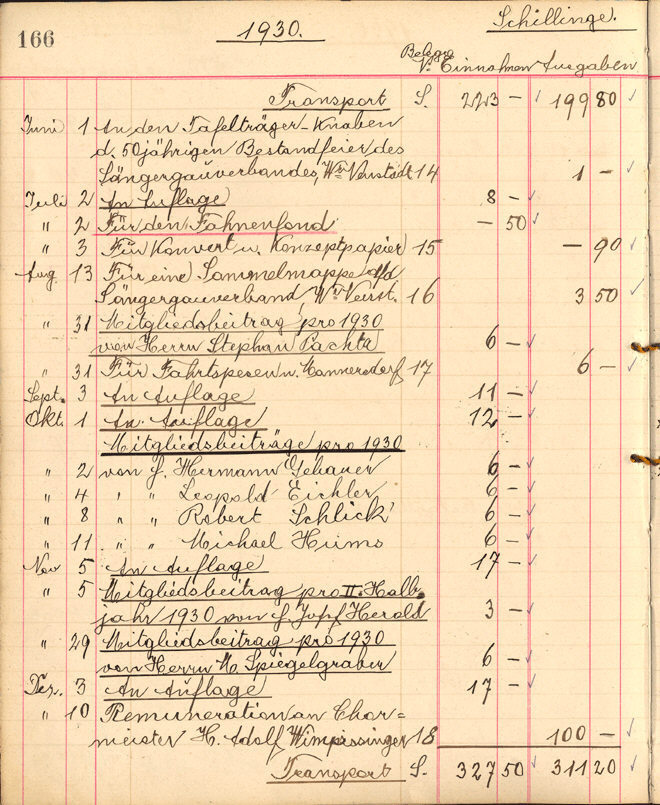 166 1930. Schillinge.
Belege
Nr. Einnahmen Ausgaben
Transport S. 223 — 199 80
Juni 1 An den Tafelträger-Knaben
d. 50jährigen Bestandfeier des
Sängergauverbandes, Wr. Neustadt 14 1 —
Juli 2 An Auflage 8 —
" 2 Für den Fahnenfond — 50
" 3 Für Konvert u. Konzeptpapier 15 — 90
Aug. 13 Für eine Sammelmappe a/d
Sängergauverband, Wr. Neust. 16 3 50
" 31 Mitgliedsbeitrag pro 1930
von Herrn Stephan Pachta 6 —
" 31 Für Fahrtspesen n. Mannersdorf 17 6 —
Sept. 3 An Auflage 11 —
Okt. 1 An Auflage 12 —
Mitgliedsbeiträge pro 1930
" 2 von H. Hermann Gebauer 6 —
" 4 " " Leopold Eichler 6 —
" 8 " " Robert Schlick 6 —
" 11 " " Michael Hums 6 —
Nov. 5 An Auflage 17 —
" 5 Mitgliedsbeitrag pro II. Halb-
jahr 1930 von H. Josef Herold 3 —
" 29 Mitgliedsbeitrag pro 1930
von Herrn M. Spiegelgraber 6 —
Dez. 3 An Auflage 17 —
" 10 Remuneration an Chor=
meister H. Adolf Wimpissinger 18 100 —
Transport S. 327 50 311 20